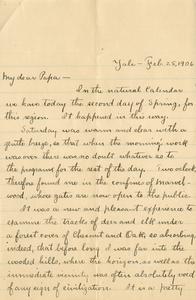 Yale - Feb. 25, 1906
My dear Papa -
In the natural Calendar
we have today the second day of Spring, for
this region. It happened in this way.
Saturday was warm and clear with a
gentle breeze, so that when the morning work
was over there was no doubt whatever as to
the program for the rest of the day. I wo'clock
therefore found me in the confines of Marvel-
wood, whose gates are now open to the public.
It was a new and pleasant experience to
examine the tracks of deer and elk under
a forest cover of Chestnut and Oak, so absorbing,
indeed, that before long I was far into the
wooded hills, where the horizon, as well as the
immediate vicinity, was often absolutely void
of any sign of civilization. It is a pretty